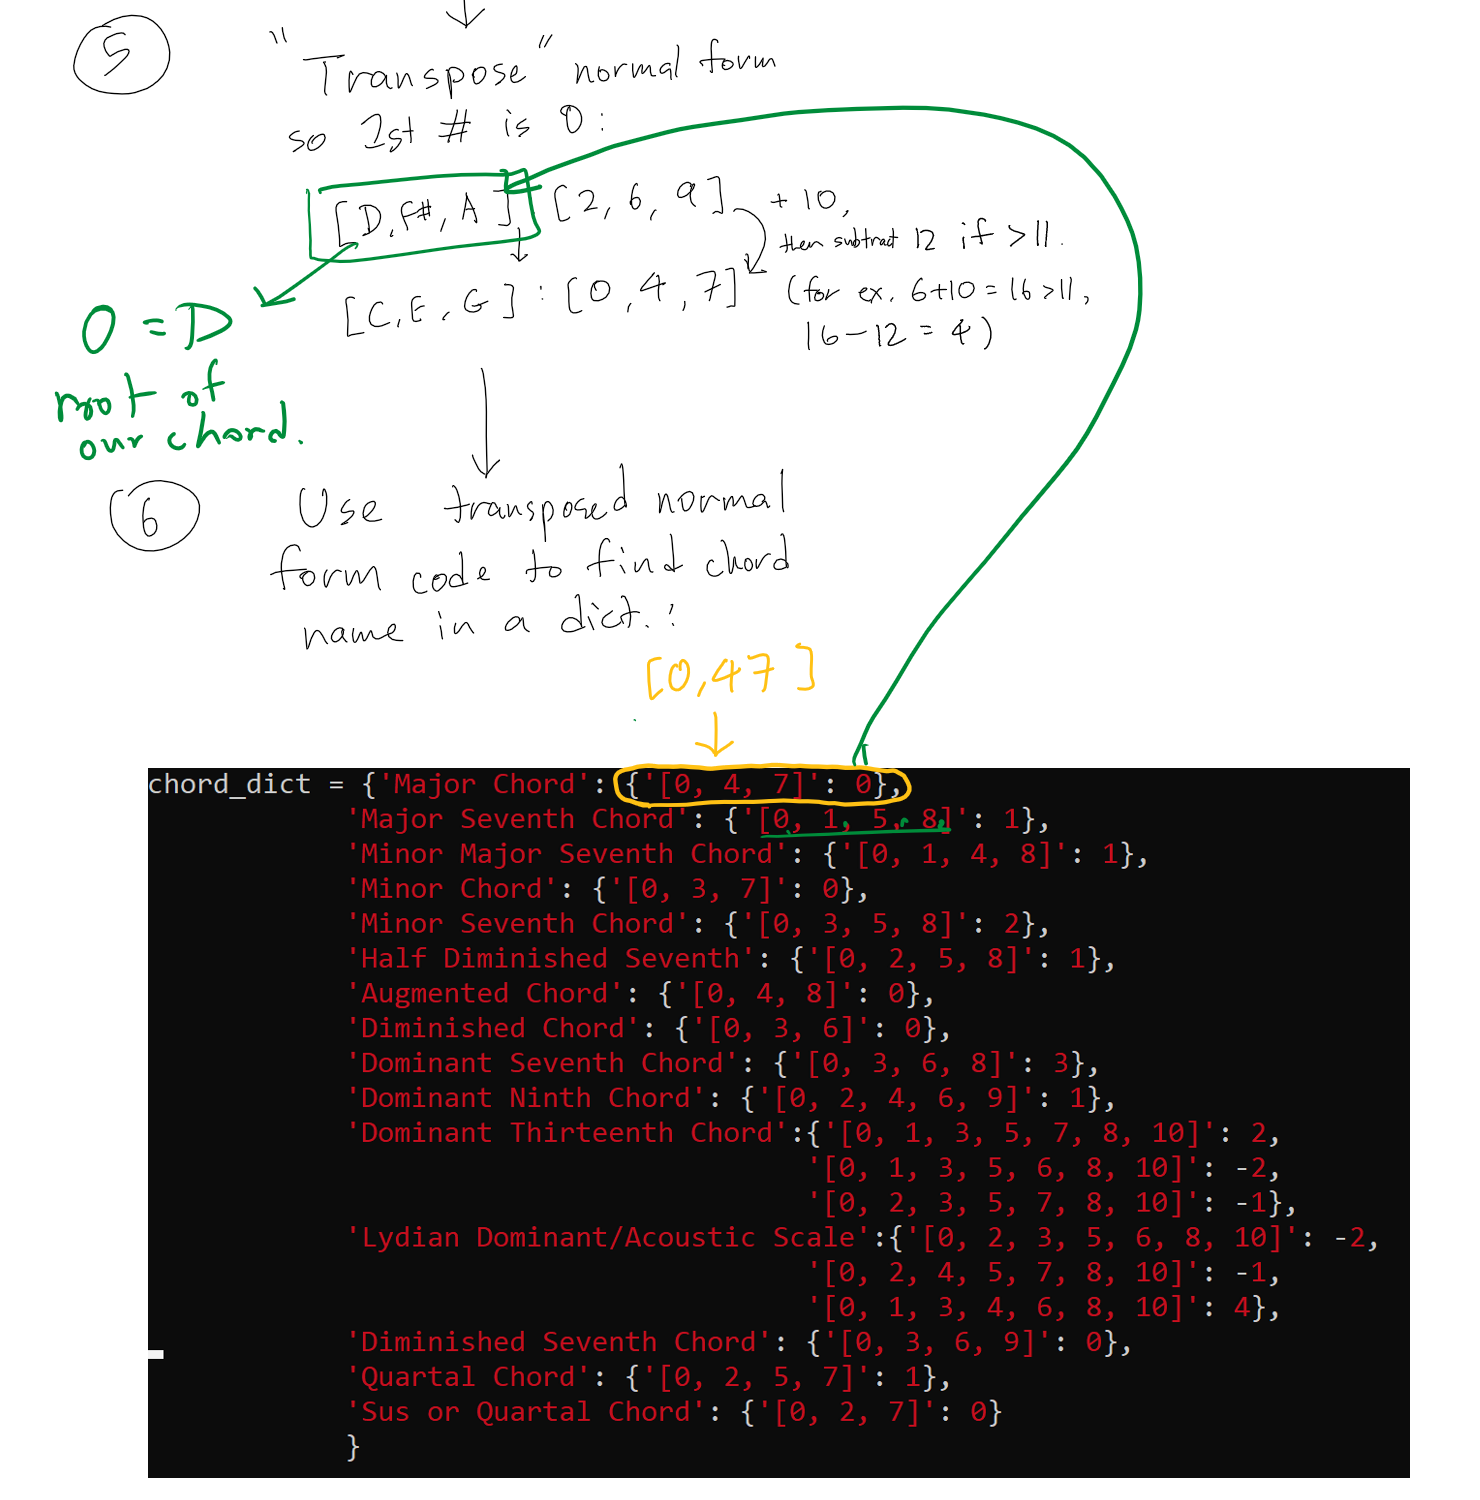 5
"Transpose" normal form
so 1st # is 0:
[D, F#, A] [2, 6, 9] + 10,
then subtract 12 if > 11.
[C, E, G] : [0, 4, 7] (for ex. 6+10 = 16 > 11,
16 - 12 = 4)
0 = D
root of
our chord.
6
Use transposed normal
form code to find chord
name in a dict.:
[0,47]
chord_dict = {'Major Chord': {'[0, 4, 7]': 0},
'Major Seventh Chord': {'[0, 1, 5, 8]': 1},
'Minor Major Seventh Chord': {'[0, 1, 4, 8]': 1},
'Minor Chord': {'[0, 3, 7]': 0},
'Minor Seventh Chord': {'[0, 3, 5, 8]': 2},
'Half Diminished Seventh': {'[0, 2, 5, 8]': 1},
'Augmented Chord': {'[0, 4, 8]': 0},
'Diminished Chord': {'[0, 3, 6]': 0},
'Dominant Seventh Chord': {'[0, 3, 6, 8]': 3},
'Dominant Ninth Chord': {'[0, 2, 4, 6, 9]': 1},
'Dominant Thirteenth Chord':{'[0, 1, 3, 5, 7, 8, 10]': 2,
'[0, 1, 3, 5, 6, 8, 10]': -2,
'[0, 2, 3, 5, 7, 8, 10]': -1},
'Lydian Dominant/Acoustic Scale':{'[0, 2, 3, 5, 6, 8, 10]': -2,
'[0, 2, 4, 5, 7, 8, 10]': -1,
'[0, 1, 3, 4, 6, 8, 10]': 4},
'Diminished Seventh Chord': {'[0, 3, 6, 9]': 0},
'Quartal Chord': {'[0, 2, 5, 7]': 1},
'Sus or Quartal Chord': {'[0, 2, 7]': 0}
}